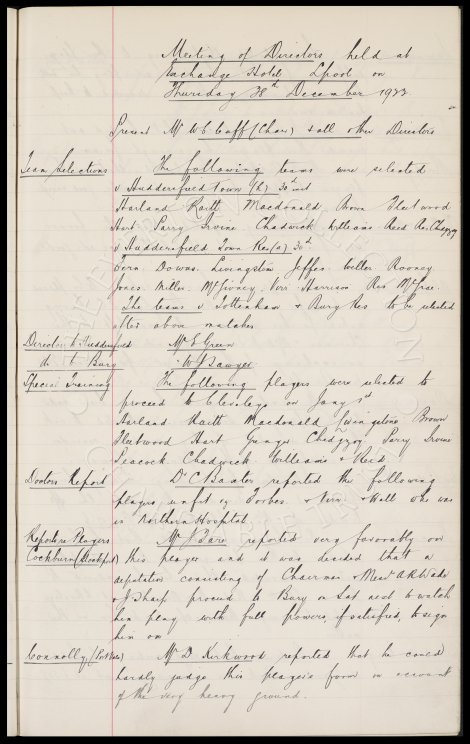 Meeting of Directors, held at
Exchange Hotel, Lpool on
Thursday 28th December 1922.
Present Mr W C Cuff (Chair) & all other Directors
Team Selections The following teams were selected
v Huddersfield Town (h) 30 inst
Harland Raitt Macdonald Brown Fleetwood
Hart Parry Irvine Chadwick Williams Reid Res. Chedgzoy
v Huddersfield Town Res (a) 30th
Fern Downs Livingstone Jeffs Weller Rooney
Jones Miller Harrison Res McGrae.
The teams v Tottenham & Bury Res to be selected
after above matches
Director to Huddersfield Mr E Green
do to Bury W J Sawyer
Special Training The following players were selected to
proceed to Cleveleys on Jany 1st
Harland Raitt Macdonald Livingstone Brown
Fleetwood Hart Ganger Chedgzoy Parry Irvine
Peacock Chadwick Williams & Reid.
Doctors Report Dr C Baxter reported the following
players unfit viz Forbes & & Wall who was
in Northern Hospital
Reports re Players Mr J Bare reported very favorably on
Cockburn (Stockport) this player and it was decided that a
deputation consisting of Chairman & Messrs A R Wade
& J Sharp proceed to Bury on Sat next to watch
him play with full powers, if satisfied, to sign
him on
Connolly (Port Vale) Mr D. Kirkwood reported that he could
hardly judge this player's form on account
of the very heavy ground.